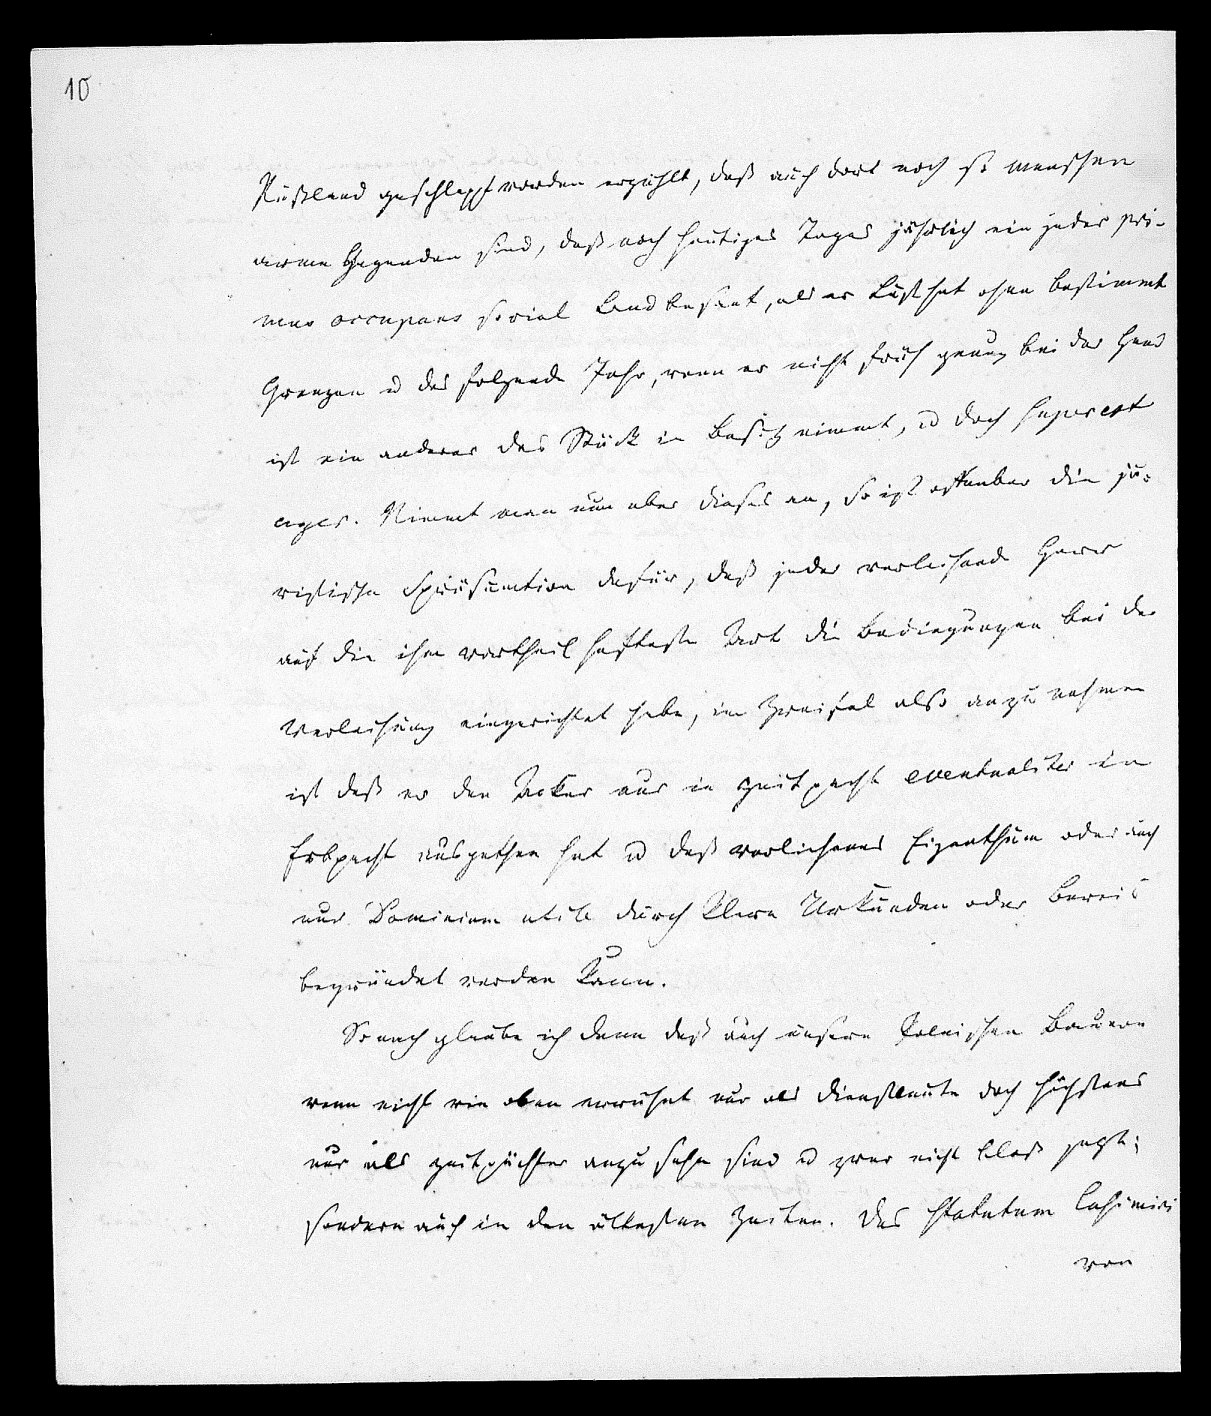 10
Rußland geschleppt worden erzählt, daß auch dort noch so menschen
arme Gegenden sind, daß noch heutiges Tages jährlich ein jeder pri-
mus occupans soviel Land besaet, als er Lust hat ohne bestimmte
Grenzen u das folgende Jahr, wenn er nicht früh genug bei der Hand
ist ein anderer das Stück in Besitz nimmt, u doch superest
ager. Nimmt man nun aber dieses an, so ist offenbar die ju-
ristische Präsumtion dafür, daß jeder verleihende Herr
auf die ihm vortheilhafteste Art die Bedingungen bei der
Verleihung eingerichtet habe, im Zweifel also anzunehmen
ist daß er den Acker nur in Zeitpacht eventualiter in
Erbpacht ausgethan hat u daß verliehenes Eigenthum oder auch
nur Dominium utile durch klare Urkunden oder Beweis
begründet werden kann.
Sonach glaube ich denn daß auch unsere Polnischen Bauern
wenn nicht wie oben erwähnt nur als Dienstleute doch höchstens
nur als Zeitpächter anzusehn sind u zwar nicht blos jezt;
sondern auch in den ältesten Zeiten. Das Statutum Casimiri
von